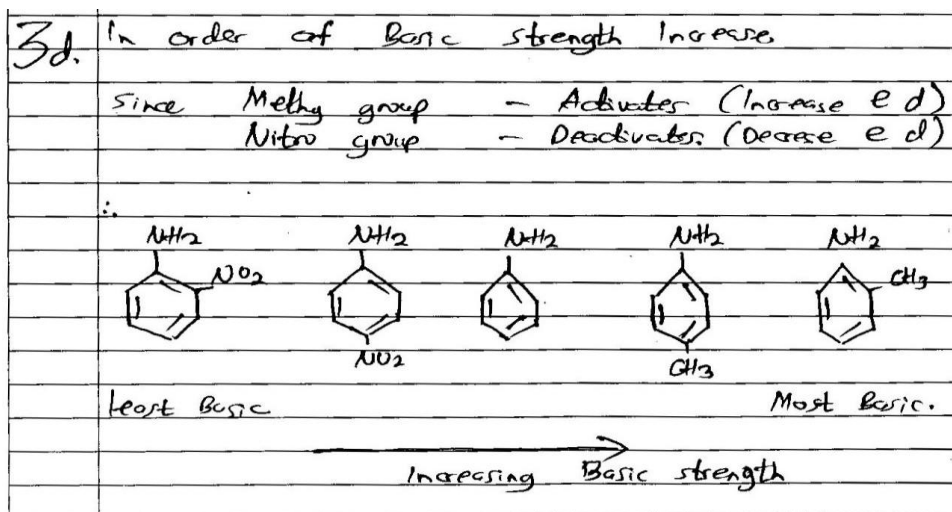 3d. In order of Basic strength Increase
since Methy group - Activates (Increase e d)
Nitro group - Deactivates. (Decrese e d)
∴
NH2 NH2 NH2 NH2 NH2
NO2 CH3
NO2 CH3
Least Basic Most Basic.
Increasing Basic strength